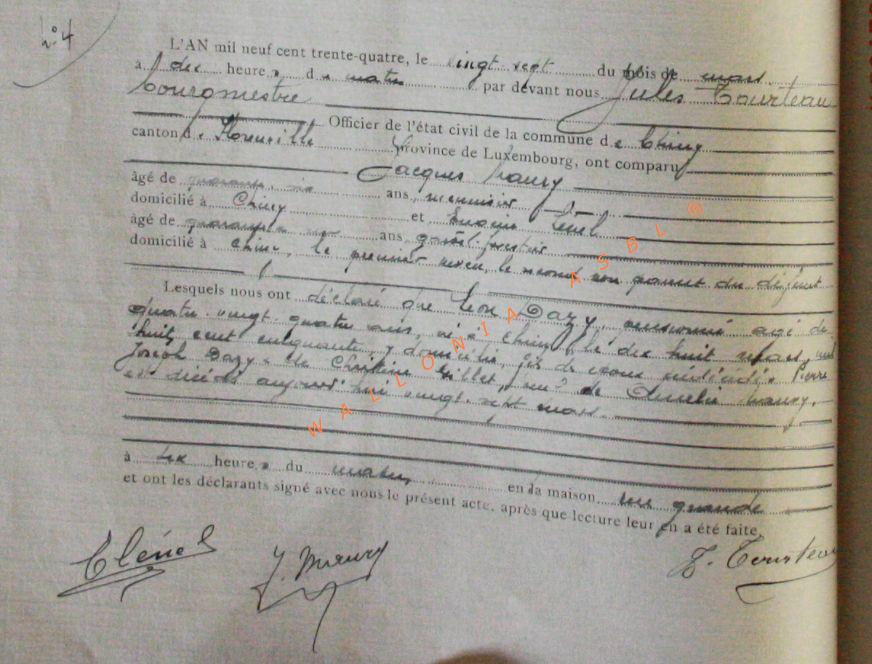 N° 4
L'AN mil neuf cent trente-quatre, le vingt sept du mois de mars
à dix heures du matin par devant nous Jules Tourteau
bourgmestre
Officier de l'état civil de la commune de Chiny
canton de Florenville province de Luxembourg, ont comparu
Jacques Maury
âgé de quarante six ans, menuisier
domicilié à Chiny et Clénel
âgé de quarante ans, garde forestier
domicilié à Chiny, le premier neveu, le second non parent du défunt
Lesquels nous ont déclaré que Léon Dazy, pensionné âgé de
quatre vingt quatre ans, né à Chiny le dix huit mars, mil
huit cent cinquante y domicilié, fils de époux décédés Pierre
Joseph Dazy et de Christine Gillet, de Amélie Maury,
est décédé aujourd'hui vingt sept mars
à six heures du matin, en sa maison rue grande
et ont les déclarants signé avec nous le présent acte, après que lecture leur en a été faite.
Clénel J. Maury J. Tourteau
WALLONIA ASBL ®